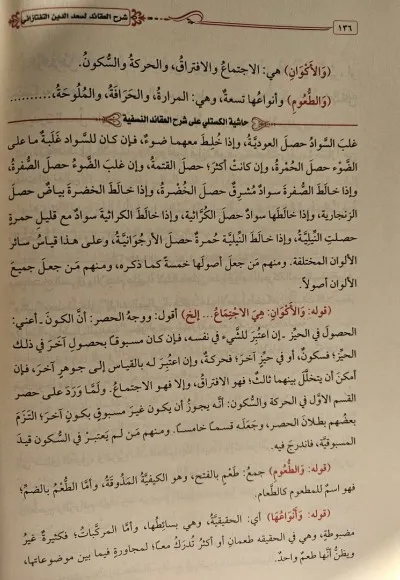 ١٣٦
شرح العقائد لسعد الدين التفتازاني
(وَالأَكْوَانِ) هي: الاجتماعُ والافتراقُ، والحركةُ والسُّكونُ.
(وَالطُّعُومِ) وأنواعُها تسعةٌ، وهي: المرارةُ، والحَرَافَةُ، والمُلُوحَةُ،..........
حاشية الكستلي على شرح العقائد النسفية
غلبَ السَّوادُ حصلَ العوديَّةُ، وإذا خُلِطَ معهما ضوءٌ، فإن كان للسواد غَلَبَةٌ ما على
الضَّوْء حصلَ الحُمْرةُ، وإن كانت أكثرَ؛ حصلَ القتمةُ، وإن غلبَ الضَّوءُ حصلَ الصُّفرةُ،
وإذا خالَطَ الصُّفرةَ سوادٌ مُشرِقٌ حصلَ الخُضْرةُ، وإذا خالَطَ الخضرةَ بياضٌ حصلَ
الزنجارية، وإذا خالَطَها سوادٌ حصلَ الكُرَّاثيةُ، وإذا خالَطَ الكراثيةَ سوادٌ مع قليلِ حمرةٍ
حصلتِ النِّيليَّةُ، وإذا خالَطَ النِّيليَّةَ حُمرةٌ حصلَ الأرجوَانيَّةُ، وعلى هذا قياسُ سائرِ
الألوان المختلفة. ومنهم مَن جعلَ أصولَها خمسةً كما ذكره، ومنهم مَن جعلَ جميعَ
الألوان أصولاً.
(قوله: وَالأَكْوَانُ: هِيَ الاجْتِمَاعُ... إلخ) أقول: ووجهُ الحصر: أنَّ الكونَ - أعني:
الحصولَ في الحيِّز - إن اعتُبرَ للشَّيء في نفسه، فإن كان مسبوقاً بحصولٍ آخرَ في ذلك
الحيِّز؛ فسكونٌ، أو في حيِّزٍ آخرَ؛ فحركةٌ، وإن اعتُبرَ له بالقياس إلى جوهرٍ آخرَ، فإن
أمكنَ أن يتخلَّلَ بينهما ثالثٌ؛ فهو الافتراقُ، وإلا فهو الاجتماعُ. ولَمَّا وَرَدَ على حصر
القسم الأول في الحركة والسُّكون: أنَّه يجوزُ أن يكونَ غيرَ مسبوقٍ بكونٍ آخرَ؛ التزمَ
بعضُهم بطلانَ الحصر، وجَعَلَه قسماً خامساً. ومنهم مَن لم يَعتبرْ في السُّكون قيدَ
المسبوقيَّة، فاندرجَ فيه.
(قوله: وَالطُّعُومِ) جمعُ: طَعْمٍ بالفتح، وهو الكيفيَّةُ المَذُوقَةُ، وأمَّا الطُّعْمُ بالضمِّ؛
فهو اسمٌ للمطعوم كالطَّعام.
(قوله: وَأَنْوَاعُهَا) أي: الحقيقيَّة، وهي بسائطُها، وأمَّا المركَّباتُ؛ فكثيرةٌ غيرُ
مضبوطةٍ، وهي في الحقيقه طعمان أو أكثرُ تُدرَكُ معاً؛ لمجاورةٍ فيما بين موضوعاتها،
ويظنُّ أنَّها طعمٌ واحدٌ.